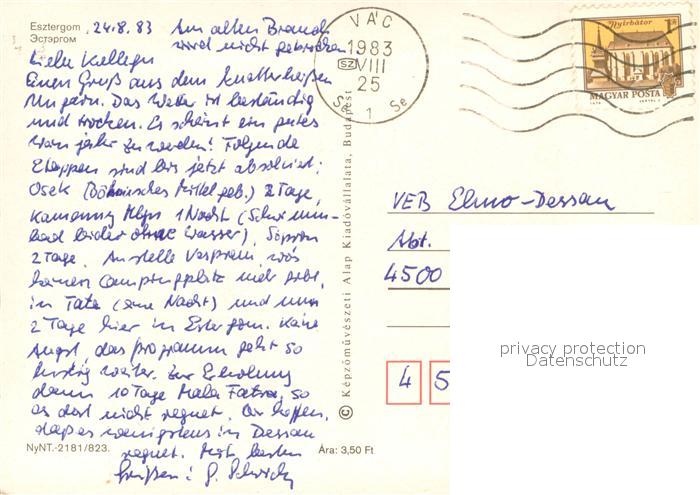 Esztergom
Эстэргом
24.8.83 Am alten Brauch
wird nicht gebrochen
Liebe Kollegen
Einen Gruß aus dem knallheißen
Ungarn. Das Wetter ist beständig
und trocken. Es scheint ein gutes
zu werden! Folgende
Etappen sind bis jetzt absolviert:
Osek (Böhmisches Mittelgeb.) 2 Tage,
1 Nacht (Schwimm-
bad leider ohne Wasser), Sopron
2 Tage. Anstelle Vesprem, wo's
keinen Campingplatz mehr gibt,
in Tata (eine Nacht) und nun
2 Tage hier in Estergom. Keine
Angst, das Programm geht so
lustig weiter. Zur Erholung
dann 10 Tage Mala Fatra, so
es dort nicht regnet. Wir hoffen,
daß es wenigstens in Dessau
regnet. Mit besten
Grüßen:
NyNT.-2181/823.
Ára: 3,50 Ft
© Képzőművészeti Alap Kiadóvállalata, Budapest
VÁC
1983
SZ VIII
25
1
Nyírbátor
1 Ft
MAGYAR POSTA
VEB Elmo-Dessau
Abt.
4500
4 5
privacy protection
Datenschutz